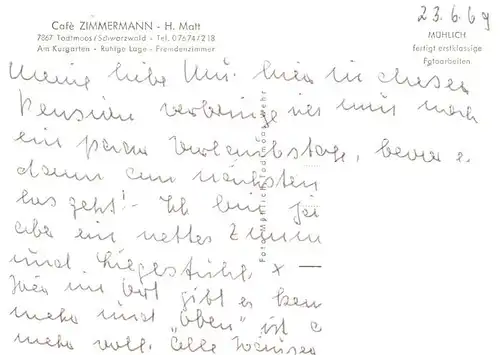 Café ZIMMERMANN - H. Matt
7867 Todtmoos/Schwarzwald - Tel. 07674/218
Am Kurgarten - Ruhige Lage - Fremdenzimmer
23.6.69
MÜHLICH
fertigt erstklassige
Fotoarbeiten.
Meine liebe Mu. hier in dieser
Pension verbringe ich nun noch
ein paar Urlaubstage, bevor e
dann am nächsten
los geht! - Ich bin
aber ein nettes Zimm
und Liegestühle x —
Hier im Ort gibt es kein
mehr und "oben" ist
mehr voll. Alle Häuser
Foto Mühlich Todtmoos-Wehr